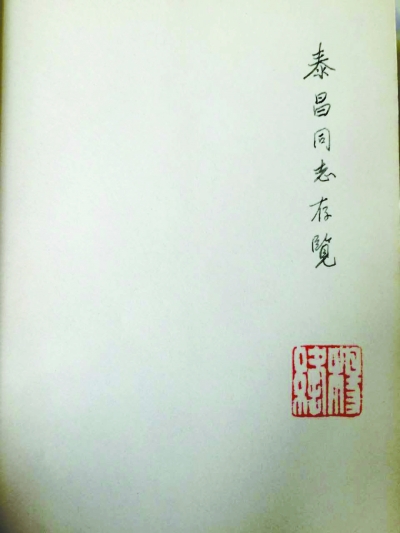 泰昌同志存覽